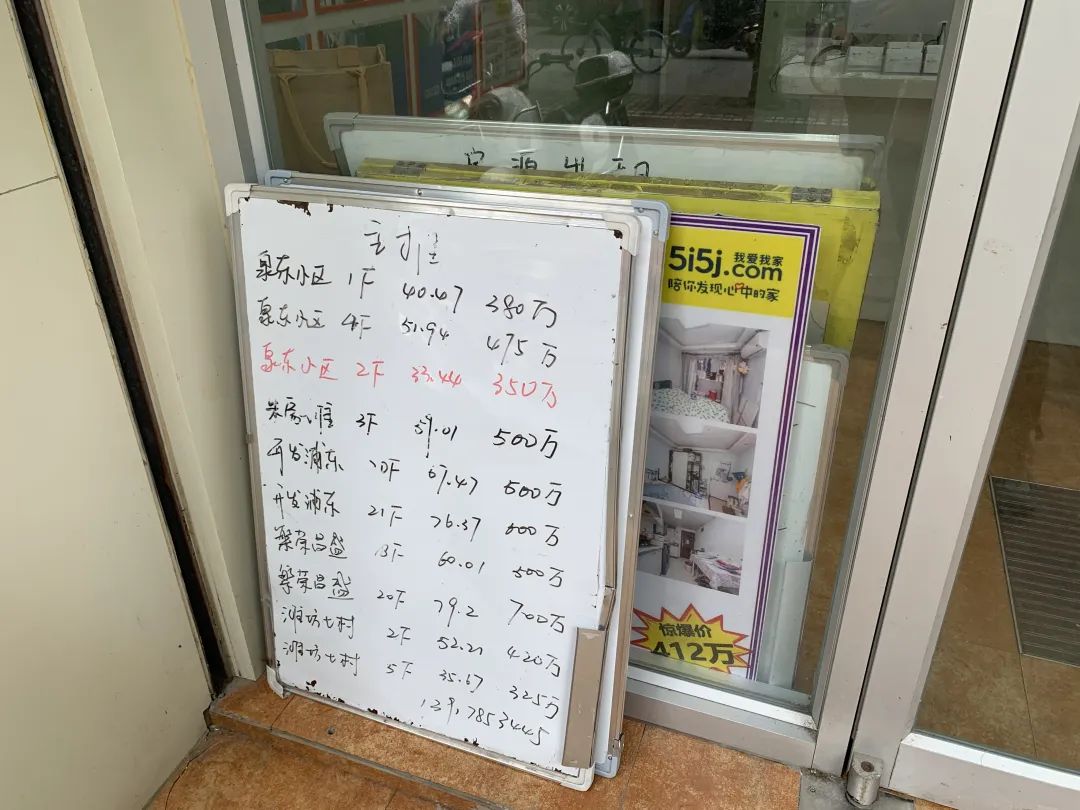 主推
泉东小区 1F 40.47 380万
泉东小区 4F 51.94 475万
泉东小区 2F 33.44 350万
3F 59.01 500万
开发浦东 10F 67.47 500万
开发浦东 21F 76.37 600万
繁荣昌盛 13F 60.01 500万
繁荣昌盛 20F 79.2 700万
潍坊七村 2F 52.21 420万
潍坊七村 5F 35.67 325万
139,7853445
房源出租
5i5j.com 我爱我家
陪你发现心中的家
惊爆价
412万